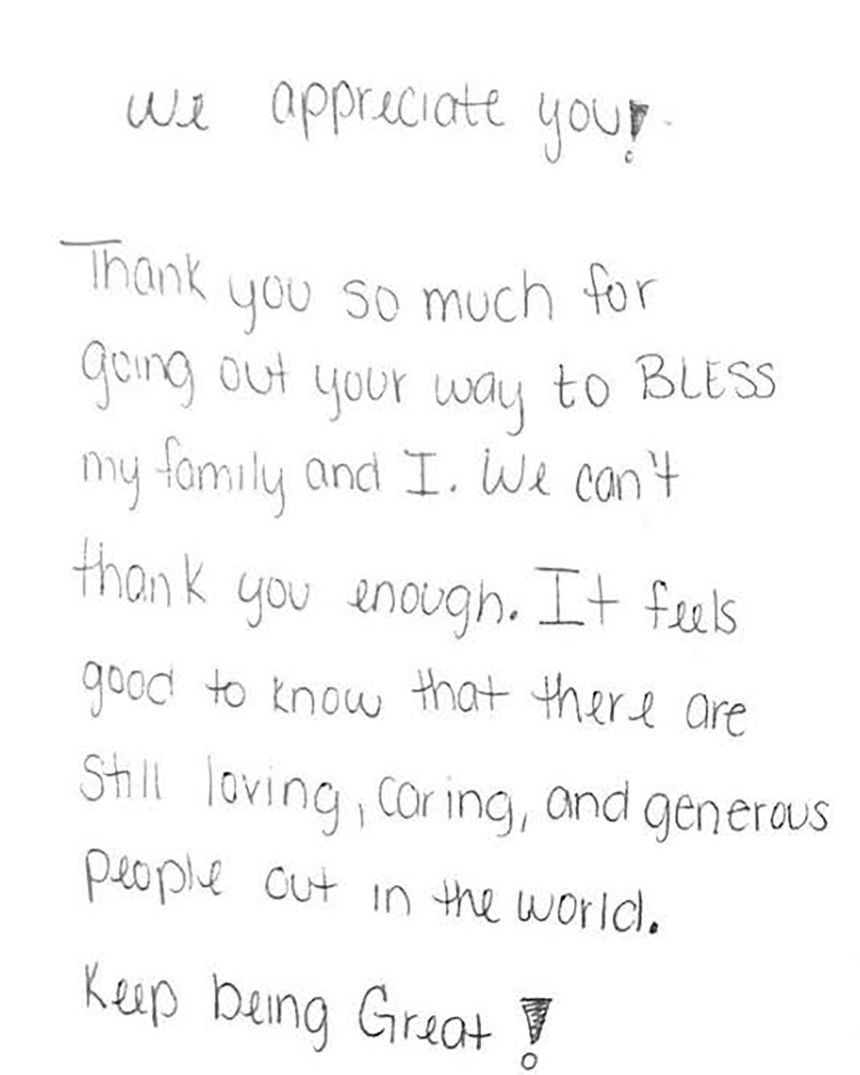 We appreciate you!
Thank you so much for
going out your way to BLESS
my family and I. We can't
thank you enough. It feels
good to know that there are
still loving, caring, and generous
people out in the world.
Keep being Great!